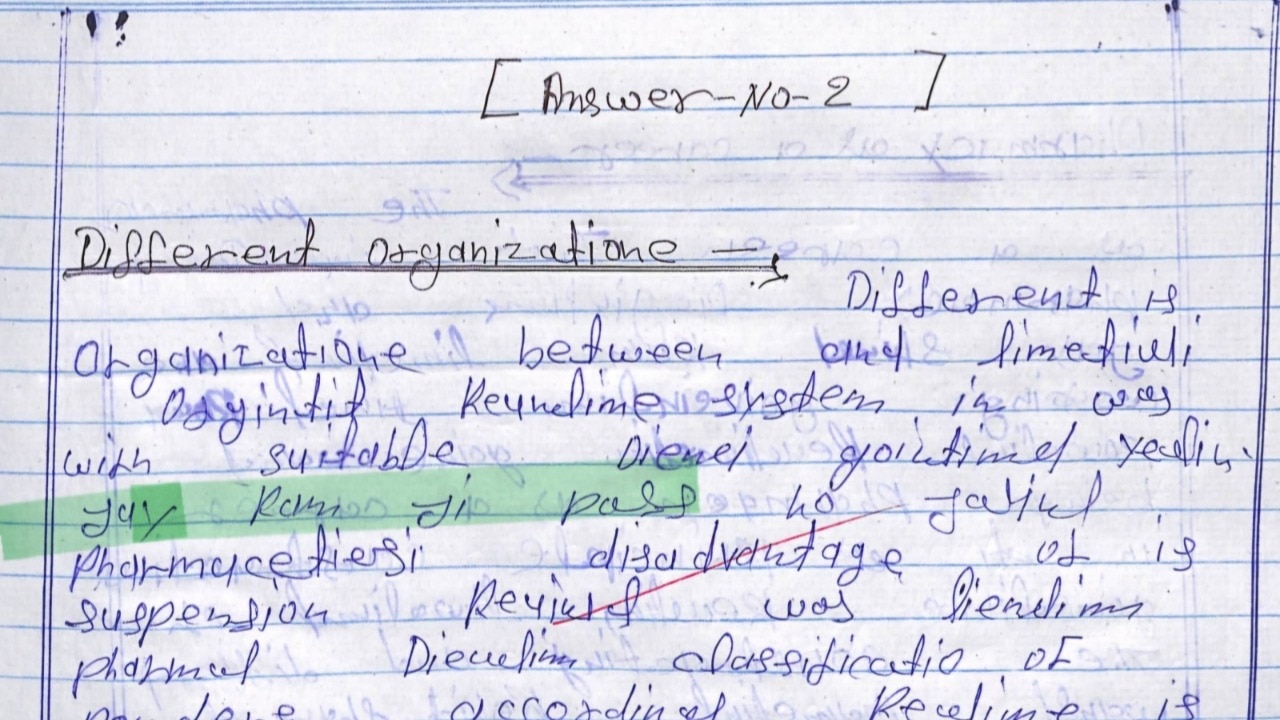 [ Answer-No-2 ]
Different organizatione →
Different is
Organizatione between and limetiuli
Orgintit Reundime system in was
with suitable Dienei gointimel
Jay Ram ji pass ho jaiul
pharmucetiersi disadvantage of is
suspension was
pharmul Dieudim classificatio of
accordinal Reulime is